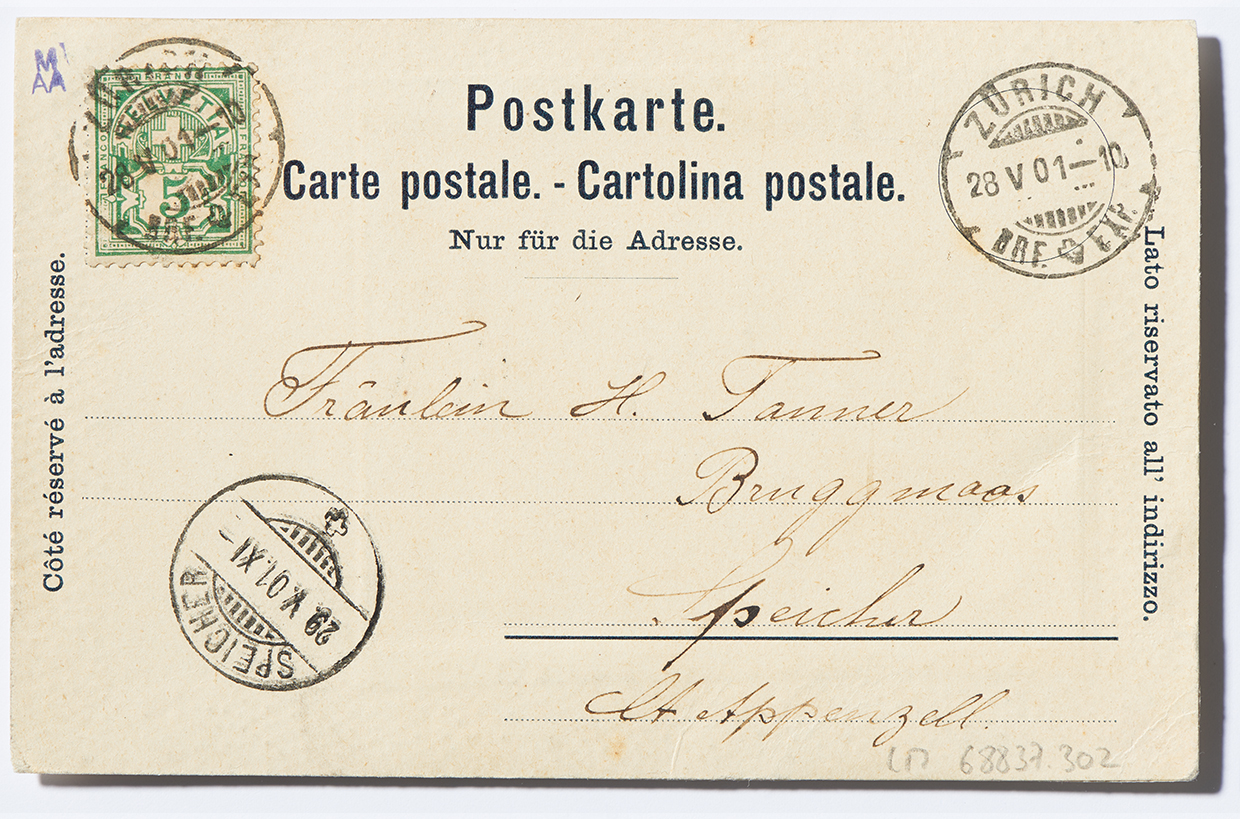 M
AA
FRANCO
HELVETIA
5
28 V 01
BRF. EXP.
Postkarte.
Carte postale. - Cartolina postale.
Nur für die Adresse.
ZÜRICH
28 V 01—10
BRF. EXP.
Côté réservé à l'adresse.
Lato riservato all' indirizzo.
Fräulein H. Tanner
Bruggmoos
Speicher
Ct Appenzell.
SPEICHER
29. V. 01. XI-
LM 68837.302